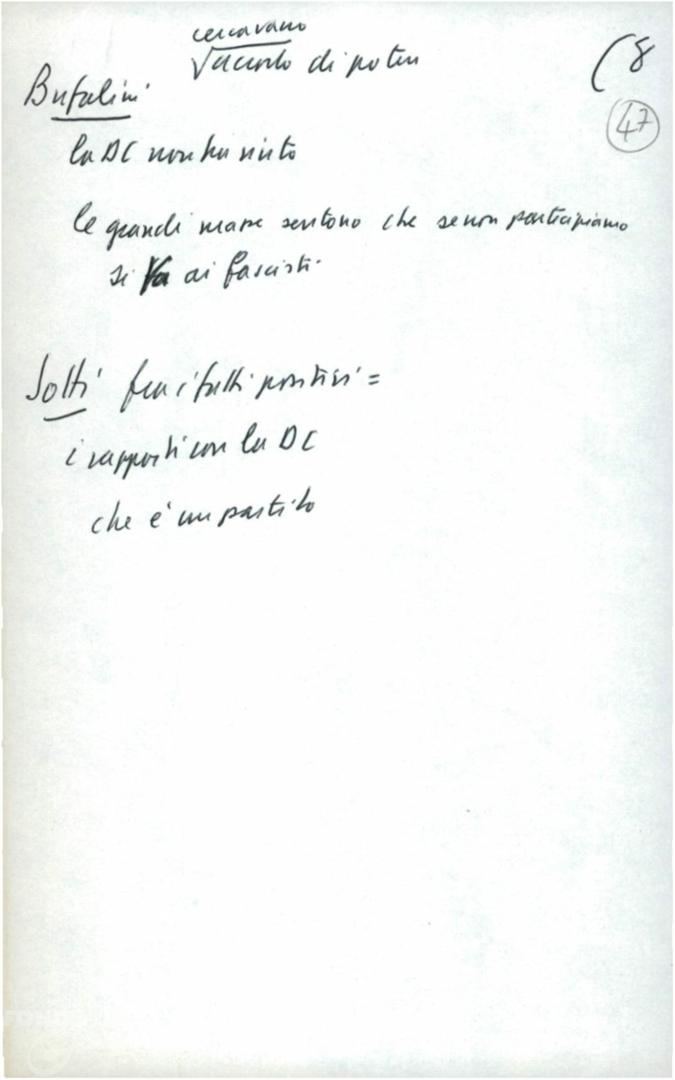 cercavano
(8
Vacanto di poten
47
Bufalini
la DC non ha vinto
le grandi masse sentono che se non partecipiamo
si va ai fascisti.
Jotti fra i fatti positivi =
i rapporti con la DC
che è un partito